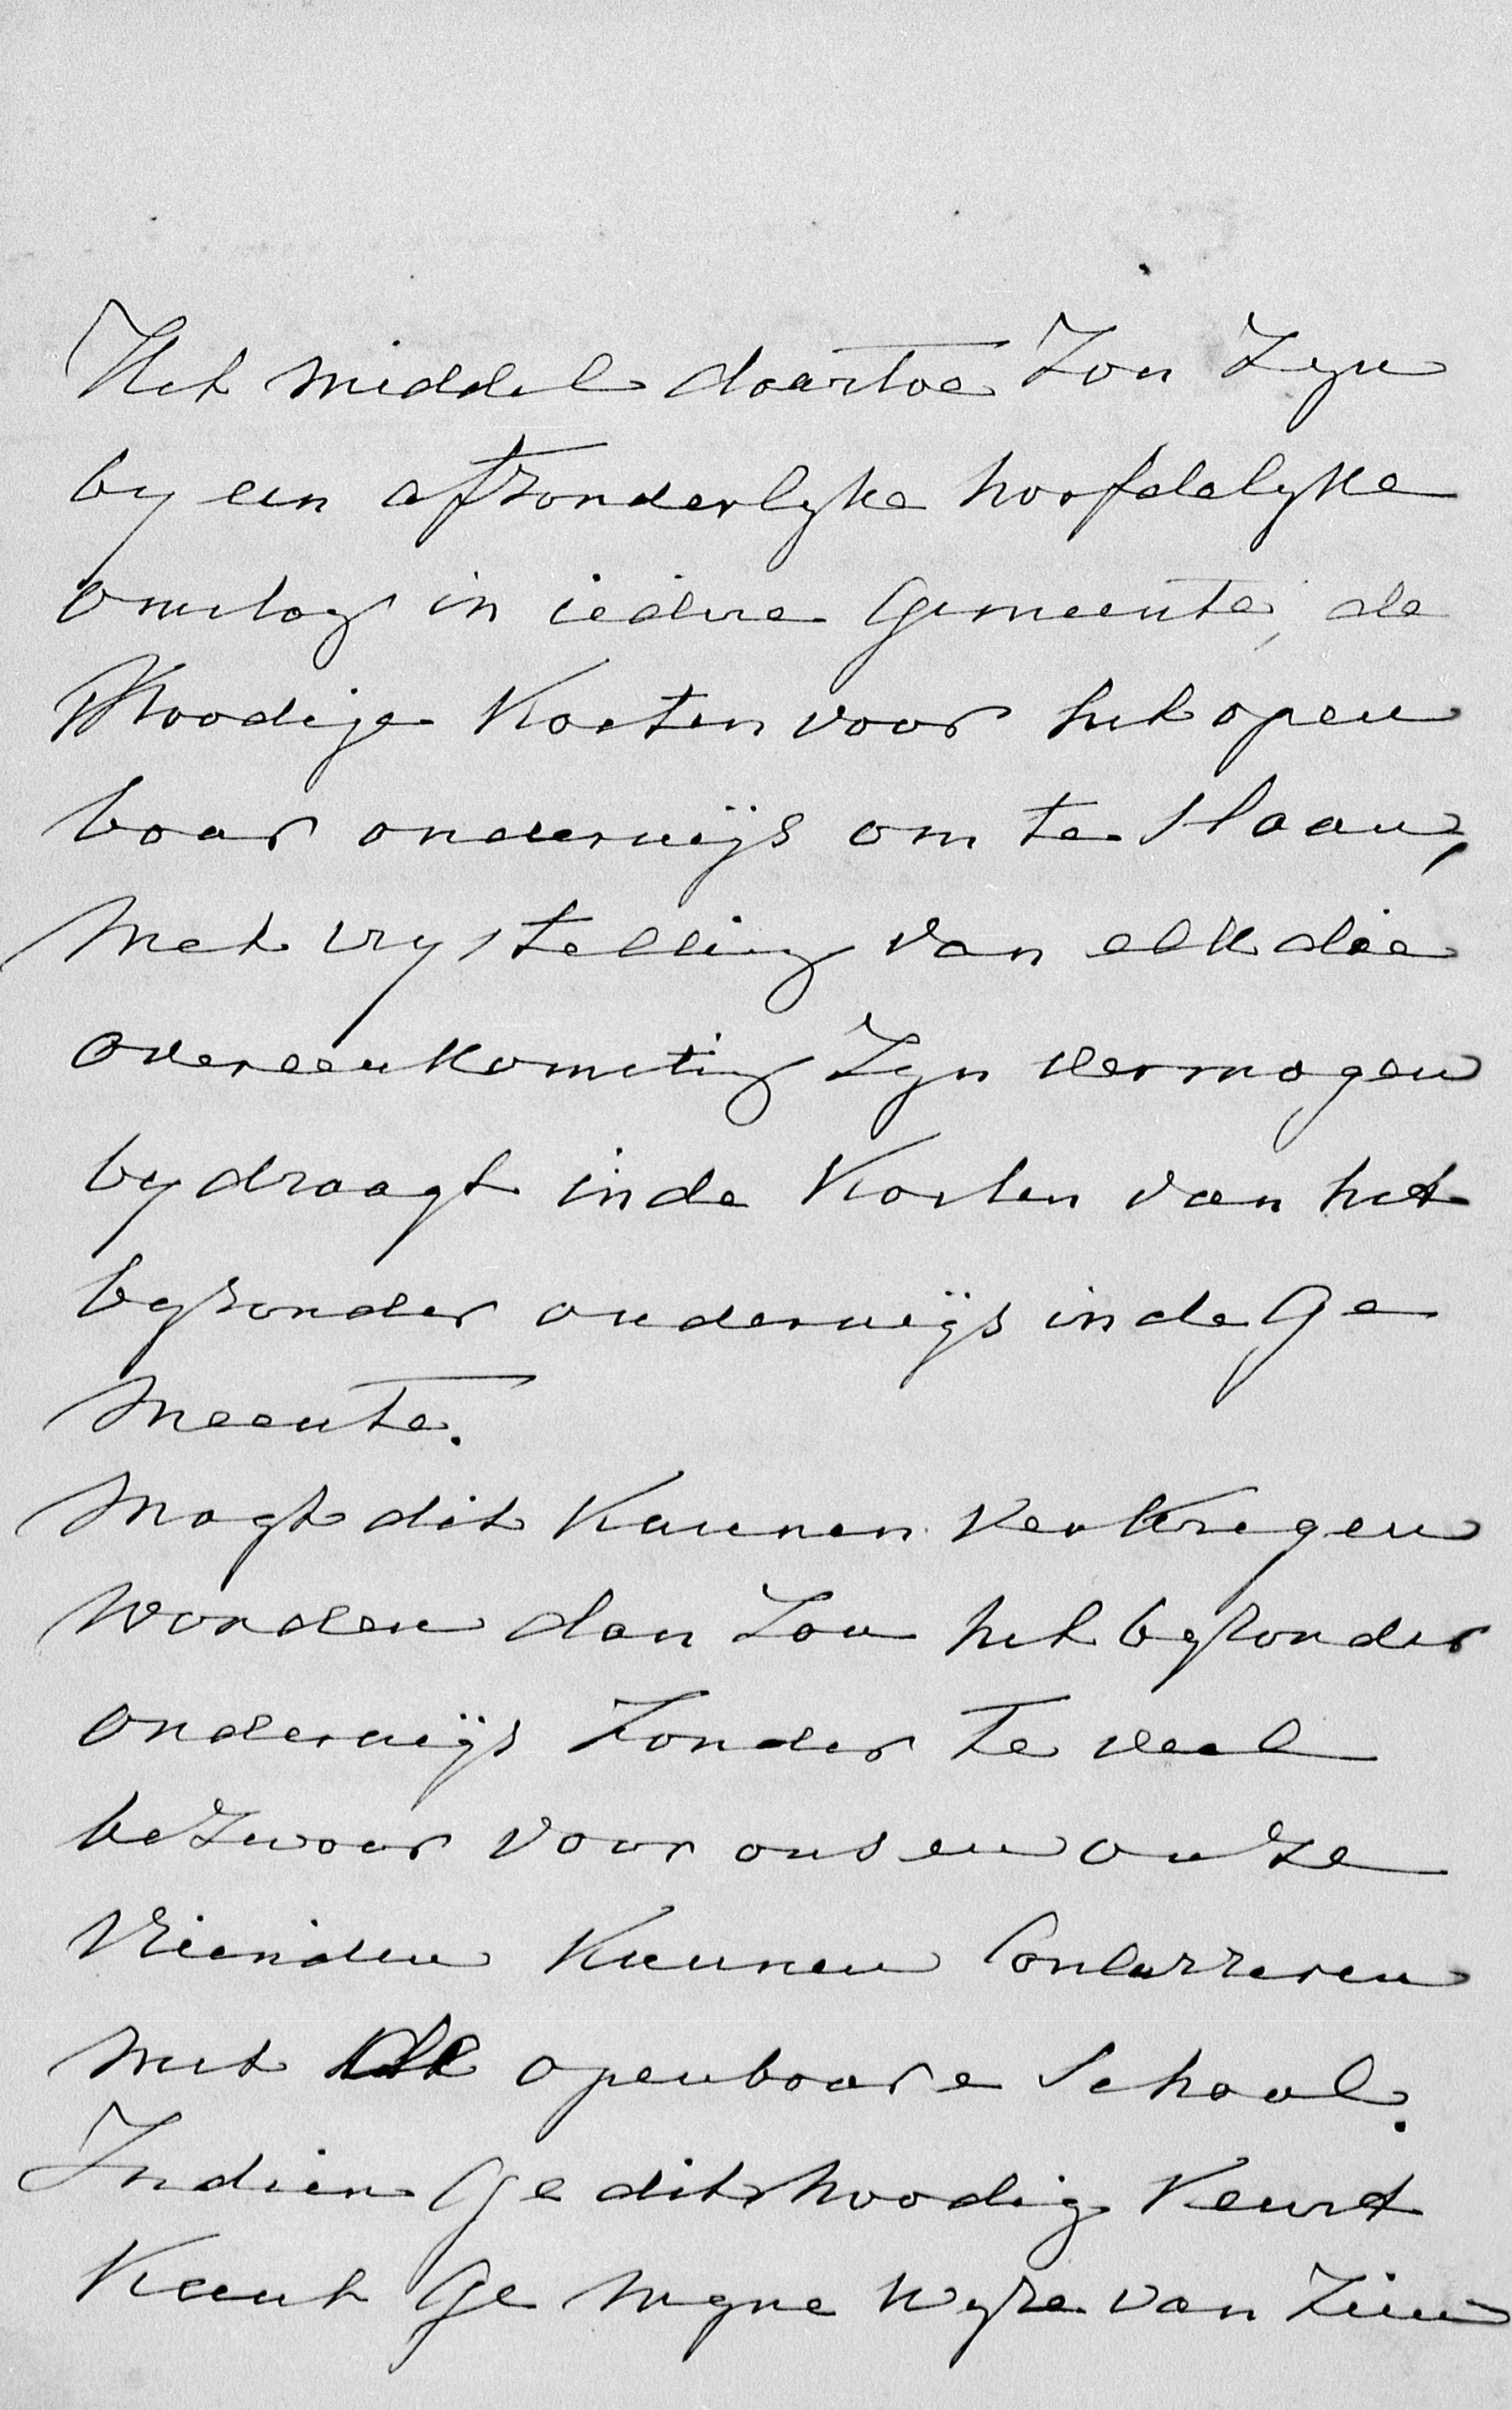 Het middel daartoe Zou Zyn
by een afzonderlyke hoofdelyke
omslag in iedere Gemeente, de
Noodige Kosten voor het open
baar onderwijs om te slaan,
Met vrystelling van elk die
overeenkomstig Zyn vermogen
bydraagt in de Kosten van het
byzonder onderwijs in de Ge
meente.
Mogt dit Kunnen verkregen
worden dan Zou het byzonder
onderwijs Zonder te veel
beZwaar voor ons en onze
Vrienden Kunnen Concurreren
met de openbaare School.
Indien Ge dit noodig Keurt
Kunt Ge Myne wyze van Zien